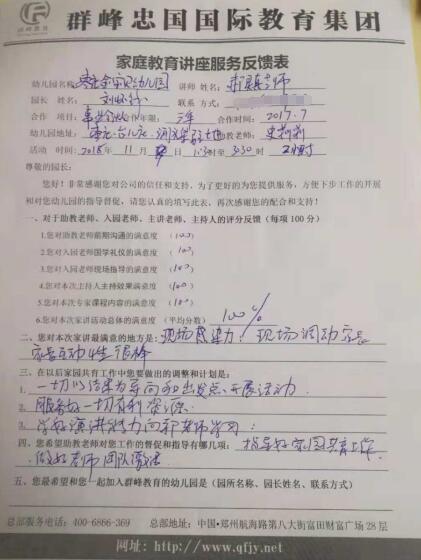 群峰教育
群峰忠国国际教育集团
家庭教育讲座服务反馈表
幼儿园名称: 幼儿园 讲师 姓名: 老师
园长 姓名: 联系 方式:
合作 项目: 合作年限: 三年 合作时间: 2017.7
幼儿园地址: 助教老师: 史莉莉
活动 时间: 2018 年 11 月 日 1:30 时至 3:30 时
尊敬的园长:
您好！非常感谢您对公司的信任和支持，为了更好的为您提供服务，方便下步工作的开展
和对您幼儿园的指导督促，请您认真的填写此表，再次感谢您的配合和支持！
一、对于助教老师、入园老师、主讲老师、主持人的评分反馈（每项 100 分）
1.您对助教老师前期沟通的满意度 (100)
2.您对入园老师国学礼仪的满意度 (100)
3.您对入园老师现场指导的满意度 (100)
4.您对本次主持人主持效果满意度 (100)
5.您对本次专家课程内容的满意度 (100)
6.您对本次家讲活动总体的满意度 (平均分数) 100%
二、您对本次家讲最满意的地方是: 现场感染力! 现场调动家长
家长互动性很棒
三、在以后家园共育工作中您要做出的调整和计划是:
1. 一切以结果为导向和出发点开展活动
2. 服务好一切有利资源
3. 学好演讲能力向郭老师学习
四、您希望助教老师对您工作的督促和指导有哪几项: 指导好家园共育工作
做好老师团队
五、您最希望和您一起加入群峰教育的幼儿园是（园所名称、园长姓名、联系方式）
总部服务电话: 400-6866-369 总部地址: 中国·郑州航海路第八大街富田财富广场 28 层
网址: http://www.qfjy.net